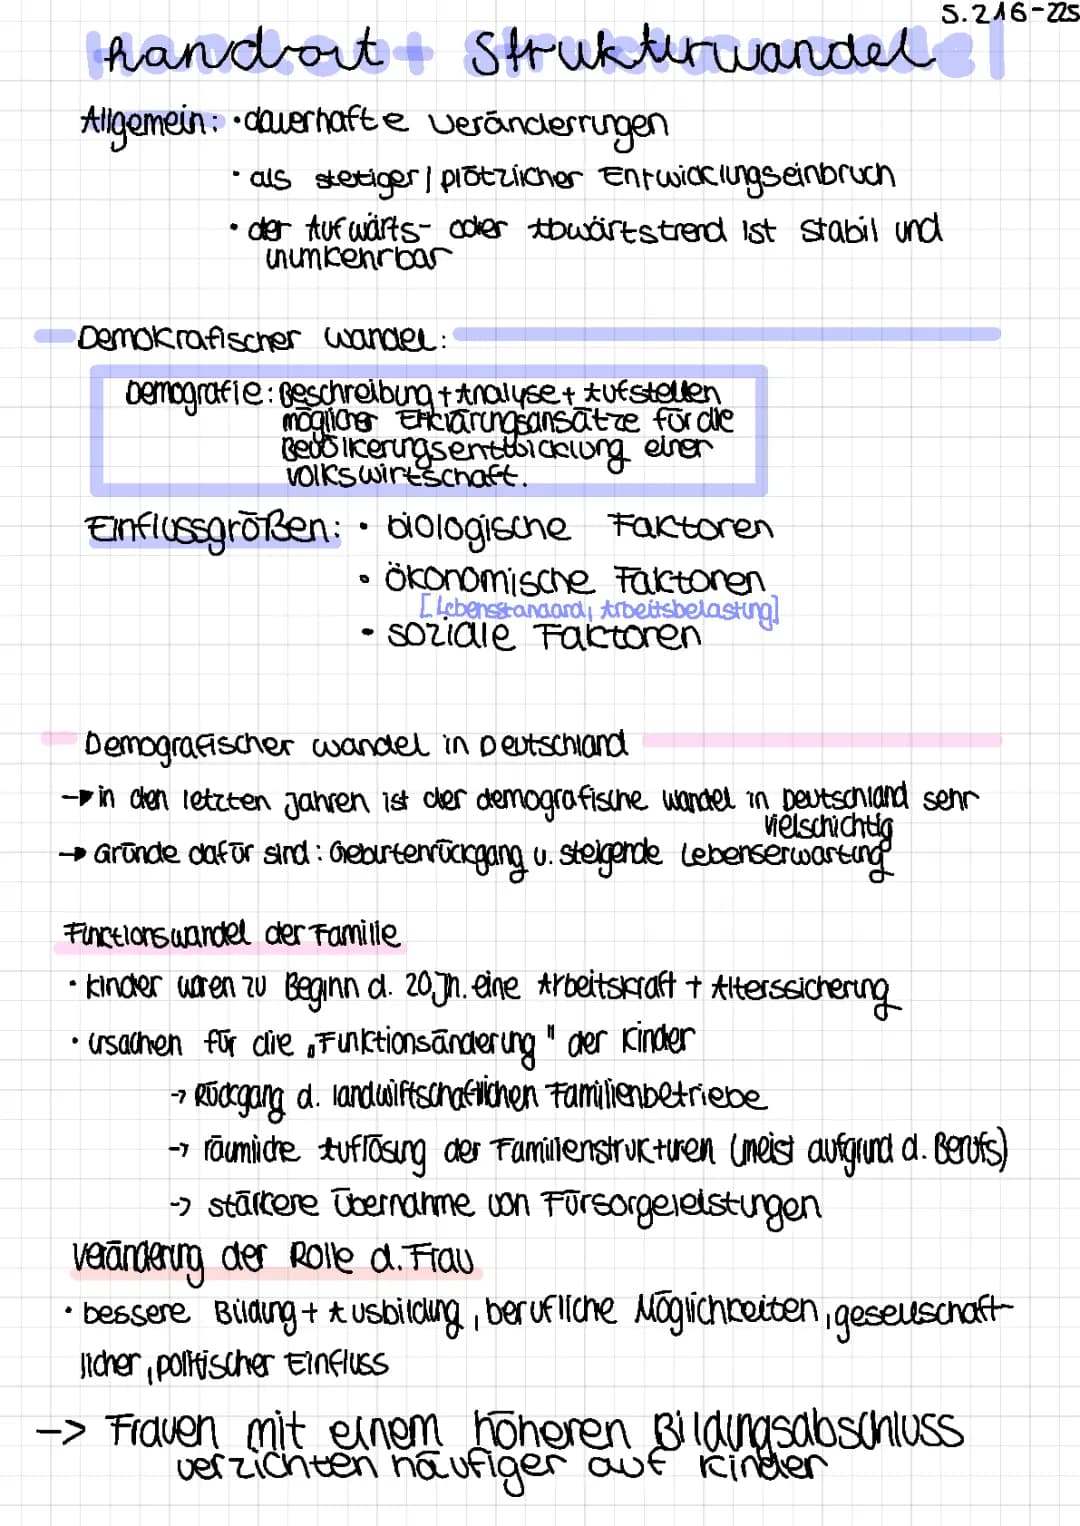 S.216-225
handout Strukturwandel
Allgemein: • dauerhafte Veränderrungen
• als stetiger / plötzlicher Entwicklungseinbruch
• der Aufwärts- oder Abwärtstrend ist stabil und
unumkehrbar
Demokrafischer wandel:
Demografie: Beschreibung + Analyse + Aufstellen
möglicher Erklärungsansätze für die
Bevölkerungsentwicklung einer
Volkswirtschaft.
Einflussgrößen: • biologische Faktoren
• ökonomische Faktoren
[Lebensstandard, Arbeitsbelastung]
• soziale Faktoren
Demografischer wandel in Deutschland
→ in den letzten Jahren ist der demografische wandel in Deutschland sehr
vielschichtig
→ Gründe dafür sind: Geburtenrückgang u. steigende Lebenserwartung
Functionswandel der Familie
• kinder waren zu Beginn d. 20. Jh. eine Arbeitskraft + Alterssicherung
• ursachen für die „Funktionsänderung" der Kinder
→ Rückgang d. landwirtschaftlichen Familienbetriebe
→ räumliche Auflösung der Familienstrukturen (meist aufgrund d. Berufs)
→ stärkere Übernahme von Fürsorgeleistungen
veränderung der Rolle d. Frau
• bessere Bildung + Ausbildung, berufliche Möglichkeiten, gesellschaft-
licher, politischer Einfluss
-> Frauen mit einem höheren Bildungsabschluss
verzichten häufiger auf Kinder